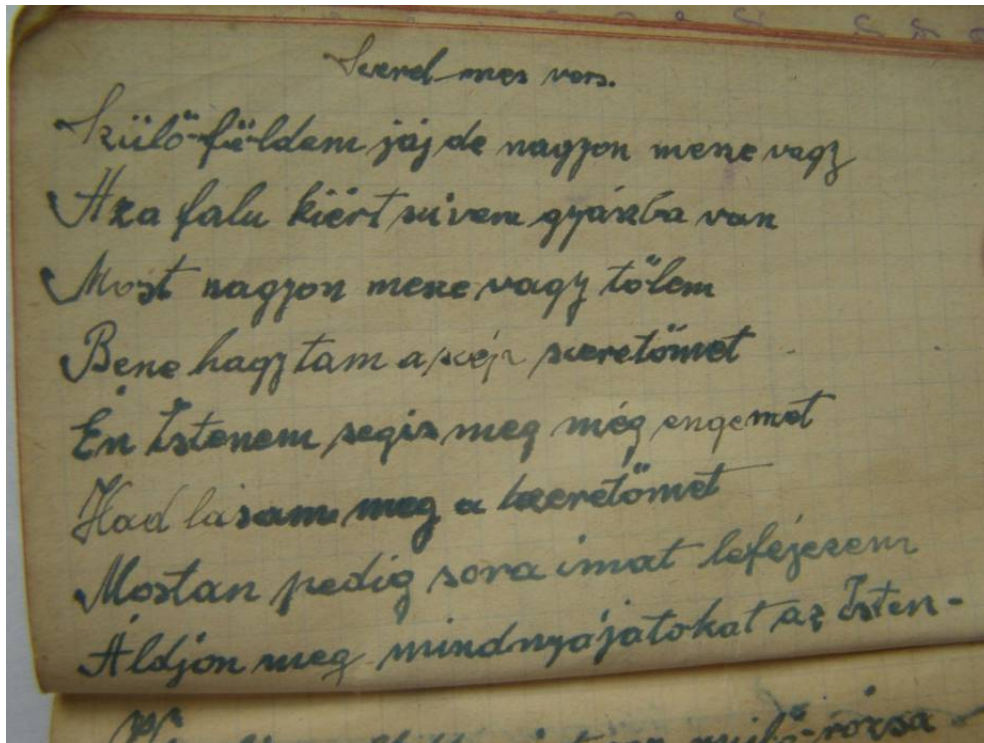 Szerelmes vers.
Szülő-földem jáj de nagyon mesze vagy
Aza falu kiért szivem gyászba van
Most nagyon mesze vagy tőlem
Bene hagytam a szép szeretőmet
Én Istenem segis meg még engemet
Had lásam meg a szeretőmet
Mostan pedig sora imat lefejezem
Áldjon meg mindnyájatokat az Isten-
rózsa